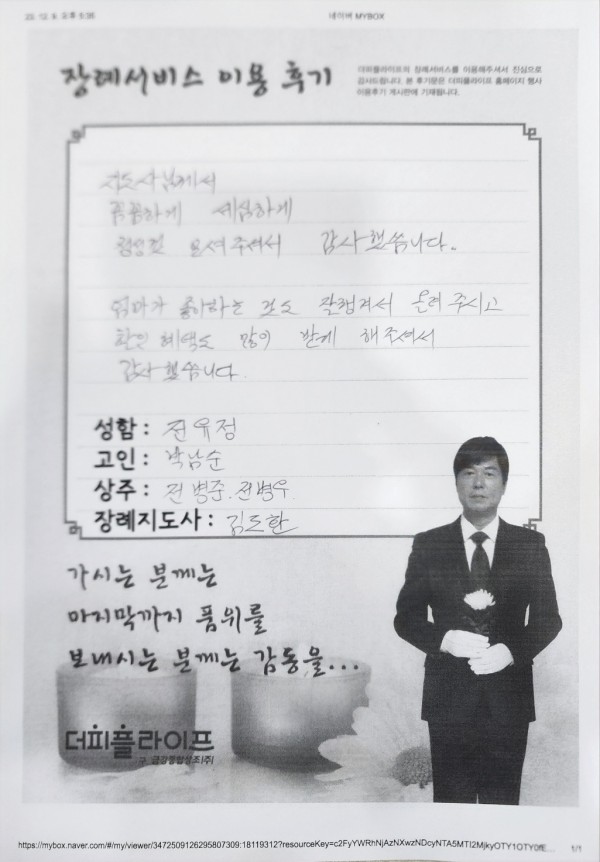 23. 12. 9. 오후 5:35
네이버 MYBOX
장례서비스 이용 후기
더피플라이프의 장례서비스를 이용해주셔서 진심으로
감사드립니다. 본 후기문은 더피플라이프 홈페이지 행사
이용후기 게시판에 기재됩니다.
지도사님께서
꼼꼼하게 세심하게
정성껏 모셔주셔서 감사했습니다.
엄마가 좋아하는 것도 잘챙겨서 올려 주시고
할인 혜택도 많이 받게 해주셔서
감사했습니다.
성함 : 전유정
고인 : 박남순
상주 : 전병준. 전병우
장례지도사 : 김도환
가시는 분께는
마지막까지 품위를
보내시는 분께는 감동을...
더피플라이프
구 금강종합상조(주)
1/1